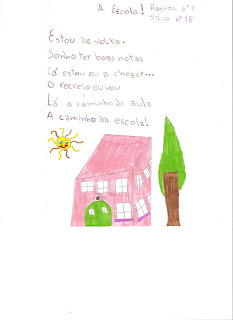 A Escola! Raquel 6º E
Silva nº 18
Estou de volta.
Sonho ter boas notas
Cá estou eu a chegar...
O recreio eu vou
Lá a caminho da aula
A caminho da escola!